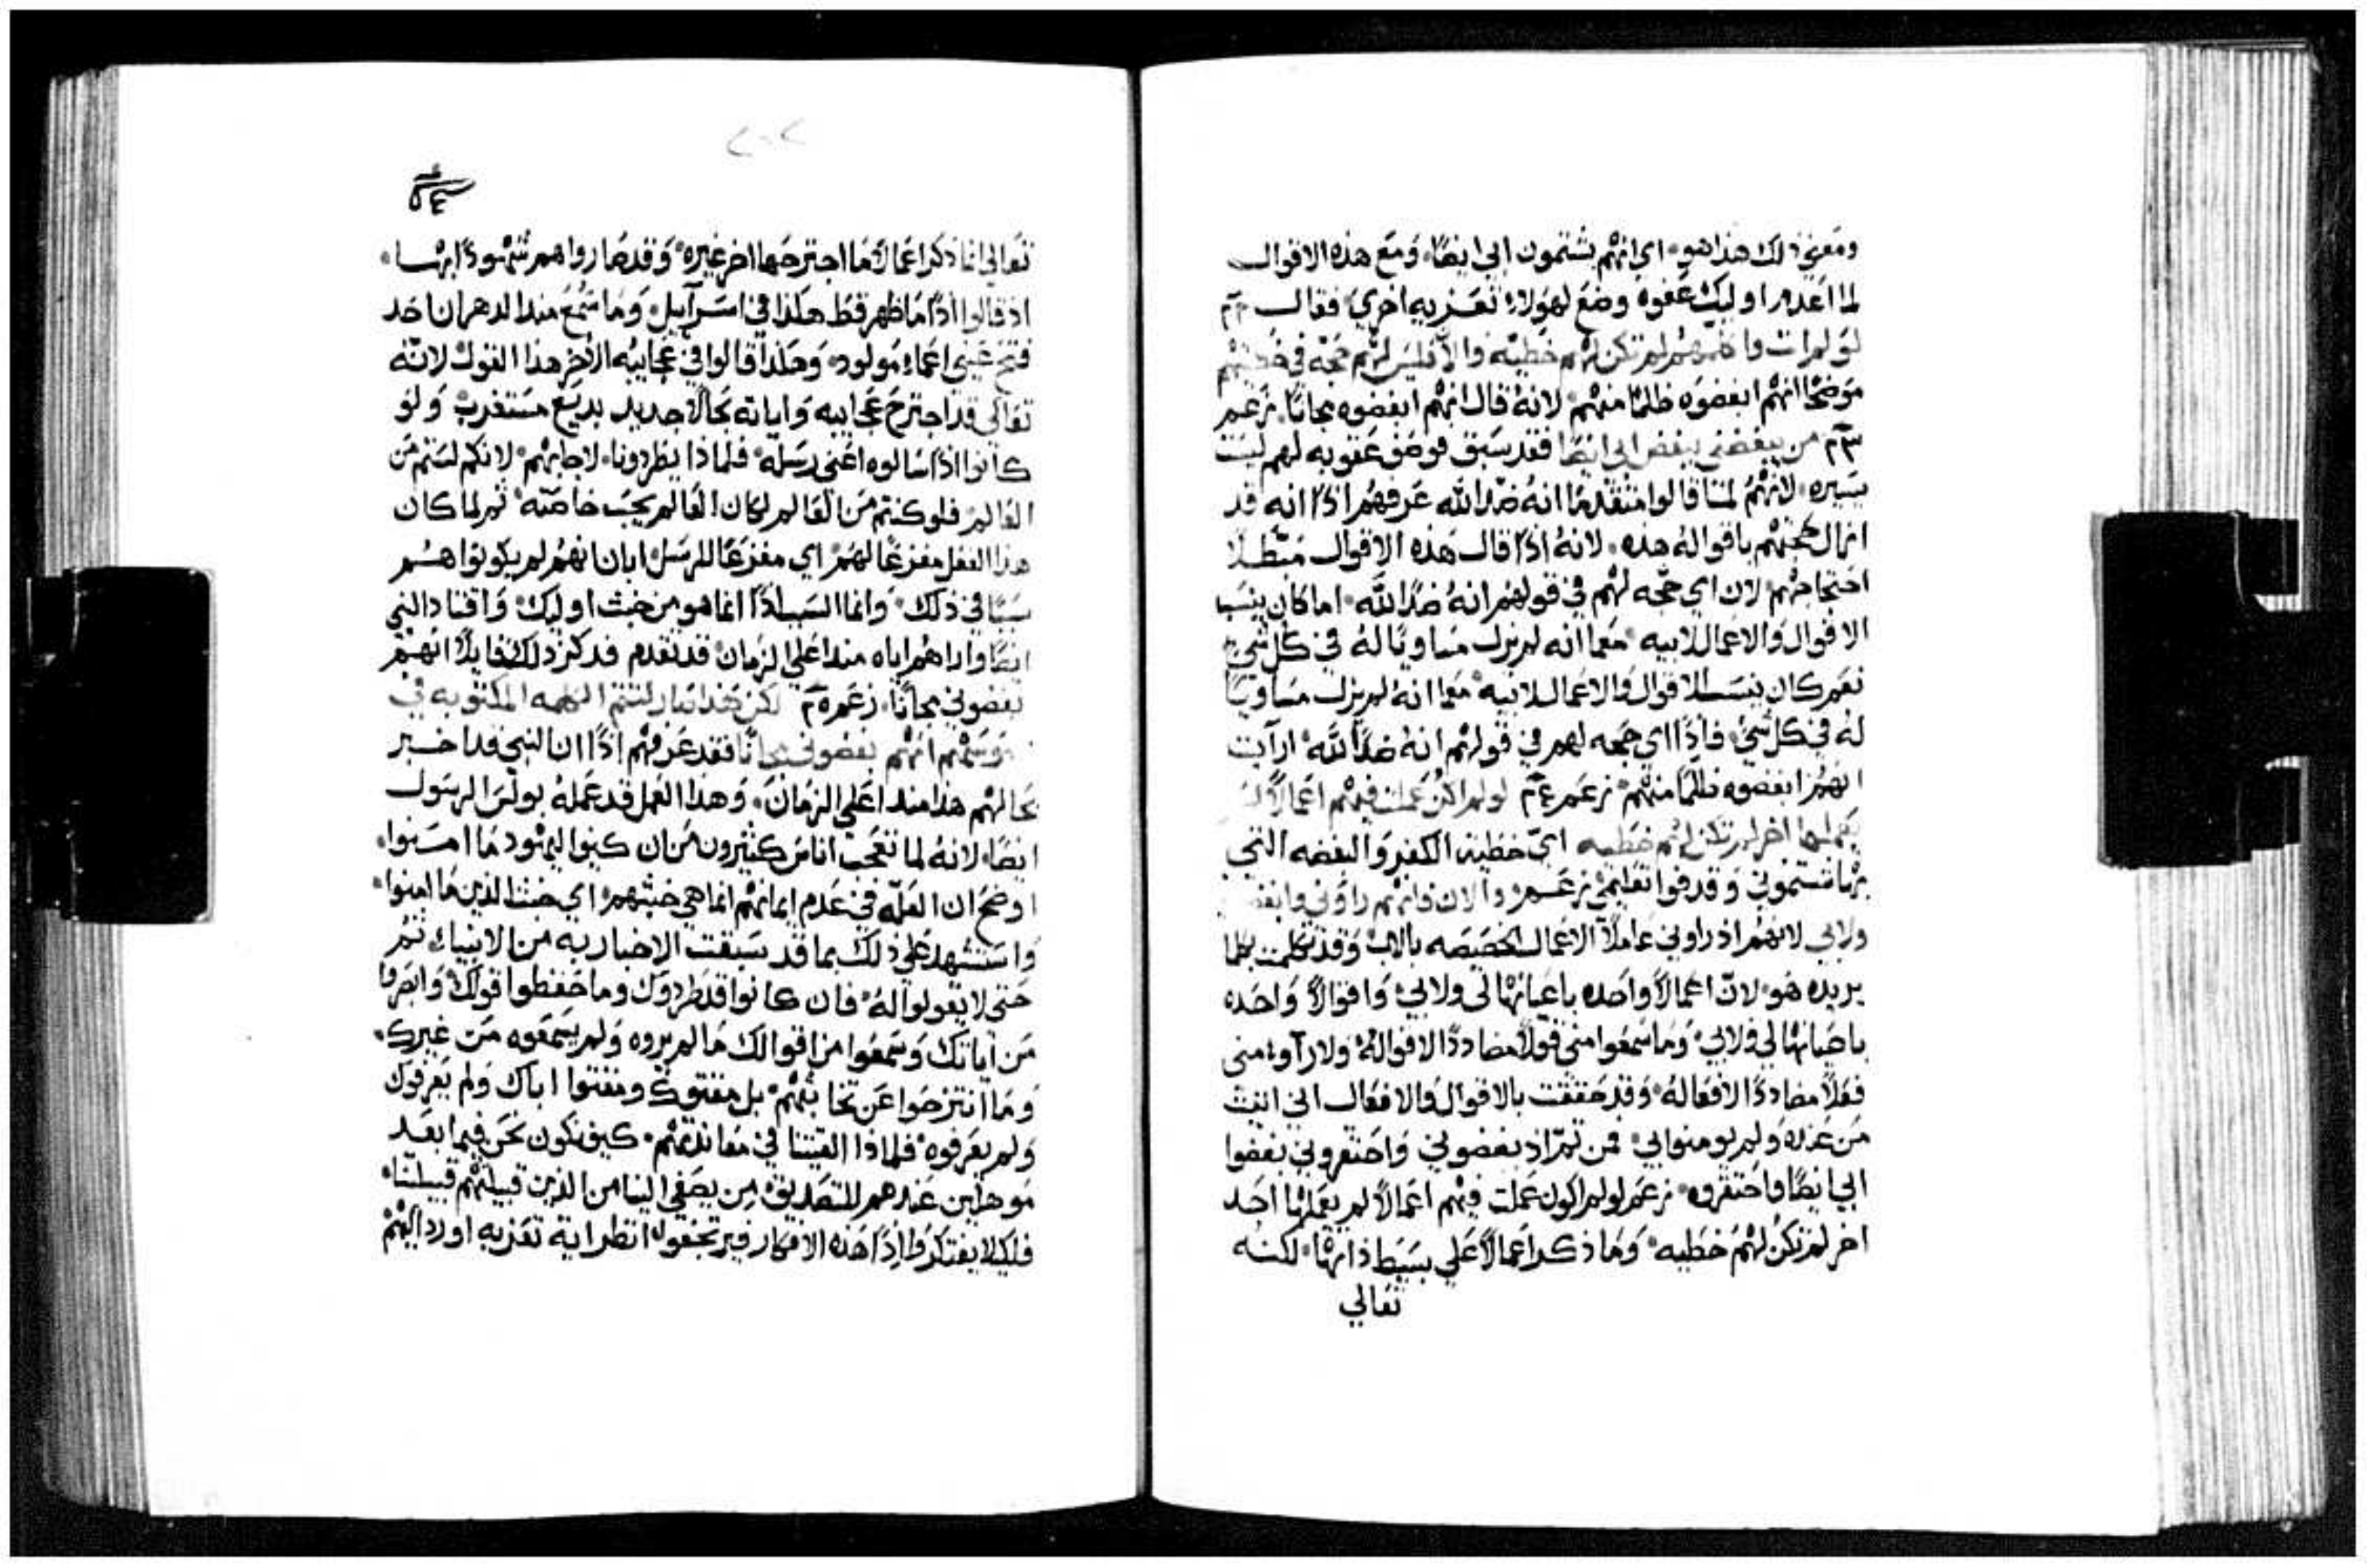 ومعني ذلك هذا هو اي انهم يشتمون ابي ايضًا ومع هذه الاقوال
لما اعدم اوليك عفوه وضع لهولاء تعزيه اخري فقال
لو لم ات واكلمهم لم تكن لهم خطيه والان فليس لهم حجه في خطيتهم
موضحًا انهم ابغضوه ظلمًا منهم لانه قال انهم ابغضوه مجانًا زعم
من يبغضني يبغض ابي ايضًا فقد سبق فوضف عقوبه لهم ليست
يسيره لانهم لما قالوا متقدمًا انه ضد الله عرفهم اذًا انه قد
ازال حجتهم باقواله هذه لانه اذا قال هذه الاقوال مبطلًا
احتجاجهم لان اي حجه لهم في قولهم انه ضدًا لله اما كان ينسب
الاقوال والاعمال لابيه معما انه لم يزل مساويًا له في كل شي
نعم كان ينسب الاقوال والاعمال لابيه معما انه لم يزل مساويًا
له في كل شي فاذًا اي حجه لهم في قولهم انه ضدًا لله ارايت
انهم ابغضوه ظلمًا منهم زعم لو لم اكن عملت فيهم اعمالًا لم
يعملها اخر لم تكن لهم خطيه اي خطية الكفر والبغضه التي
بها تشتموني وقد فوا تعليمي زعم والان فانهم راوني وابغضوني
ولابي لانهم اذ راوني عاملًا الاعمال الخصيصه بالاب وقد تكلمت بكلما
يريده هو لان اعمالًا واحده باعيانها لي ولابي واقوالًا واحده
باعيانها لي ولابي وما سمعوا مني قولًا مضاددًا لاقواله ولا راوا مني
فعلًا مضاددًا لافعاله وقد حققت بالاقوال والافعال اني اتيت
من عنده ولم يومنوا بي فمن ثم اذ بغضوني واحتقروني بغضوا
ابي ايضًا واحتقروه زعم لو لم اكون عملت فيهم اعمالًا لم يعملها احد
اخر لم تكن لهم خطيه وما ذكر اعمالًا علي بسيط ذاتها لكنه
تعالي
٢٠٢
تعالي انما ذكر اعمالًا ما اجترحها اخر غيره وقد صاروا هم شهودًا بها
اذ قالوا اذًا ما ظهر قط هكذا في اسرآييل وما سمع منذ الدهر ان احد
فتح عيني اعماء مولود وهكذا قالوا في عجايبه الاخر هذا القول لانه
تعالي قد اجترح عجايبه واياته بحالًا جديد بديع مستغرب ولو
كانوا اذًا سالوه اعني رسله فلماذا يطردونا لاجابهم لانكم لستم من
العالم فلو كنتم من العالم لكان العالم يحب خاصته ثم لما كان
هذا الفعل مفزعًا لهم اي مفزعًا للرسل ابان انهم لم يكونوا هم
سببًا في ذلك وانما السبب اذًا انما هو من خبث اوليك واقتاد النبي
ايضًا واراهم اياه منذ اعلي الزمان قد تقدم فذكر ذلك قايلًا انهم
بغضوني مجانًا زعم لكن هذا صار لتتم الكلمه المكتوبه في
سنتهم انهم بغضوني مجانًا فقد عرفهم اذًا ان النبي قد اخبر
بحالهم هذا منذ اعلي الزمان وهذا العمل قد عمله بولس الرسول
ايضًا لانه لما تعجب اناس كثيرون من ان كيف اليهود ما امنوا
اوضح ان العله في عدم ايمانهم انما هي خبثهم اي خبث الذين ما امنوا
واستشهد علي ذلك بما قد سبقت الاخبار به من الانبياء ثم
حتي لا يقولوا له فان كانوا قد طردوك وما حفظوا قولك وابصروا
من اياتك وسمعوا من اقوالك ما لم يروه ولم يسمعوه من غيرك
وما انتزحوا عن بل مقتوك ومقتوا اباك ولم يعرفوك
ولم يعرفوه فلماذا القيتنا في معاندتهم كيف نكون نحن فيما بعد
موهلين عندهم للتصديق من يصغي الينا من الذين قبيلتهم قبيلتنا
فلكيلا يفتكروا اذًا هذه الافكار فيرتجفوا انظر اية تعزيه اورد اليهم